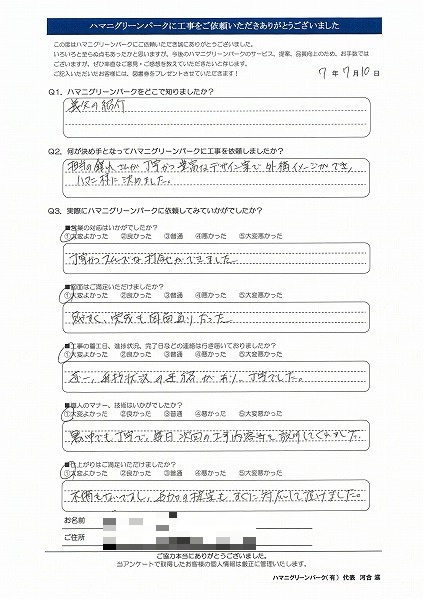 ハマニグリーンパークに工事をご依頼いただきありがとうございました
この度はハマニグリーンパークにご依頼いただき誠にありがとうございました。
いろいろと至らぬ点もあったかと思いますが、今後のハマニグリーンパークのサービス、提案、品質向上のため、お手数では
ございますが、ぜひ率直なご意見・ご感想を教えていただきたいと存じます。
ご記入いただいたお客様には、図書券をプレゼントさせていただきます！
7 年 7 月 10 日
Q1. ハマニグリーンパークをどこで知りましたか？
義父の紹介
Q2. 何が決め手となってハマニグリーンパークに工事を依頼しましたか？
さんが丁寧かつ豊富なデザイン案で外構イメージができ、
ハマニ様に決めました。
Q3. 実際にハマニグリーンパークに依頼してみていかがでしたか？
■営業の対応はいかがでしたか？
①大変よかった ②良かった ③普通 ④悪かった ⑤大変悪かった
丁寧かつスムーズな打合せができました
■図面はご満足いただけましたか？
①大変よかった ②良かった ③普通 ④悪かった ⑤大変悪かった
見やすく、完成も図面通りだった
■工事の着工日、進捗状況、完了日などの連絡は行き届いておりましたか？
①大変よかった ②良かった ③普通 ④悪かった ⑤大変悪かった
逐一、進捗状況の連絡があり、丁寧でした。
■職人のマナー、技術はいかがでしたか？
①大変よかった ②良かった ③普通 ④悪かった ⑤大変悪かった
暑い中でも丁寧で、毎日次回の工事内容等を説明してくれました
■仕上がりはご満足いただけましたか？
①大変よかった ②良かった ③普通 ④悪かった ⑤大変悪かった
不備もないですし、もすぐに対応して頂けました。
お名前
ご住所
ご協力本当にありがとうございました。
当アンケートで取得したお客様の個人情報は厳正に管理いたします。
ハマニグリーンパーク(有) 代表 河合